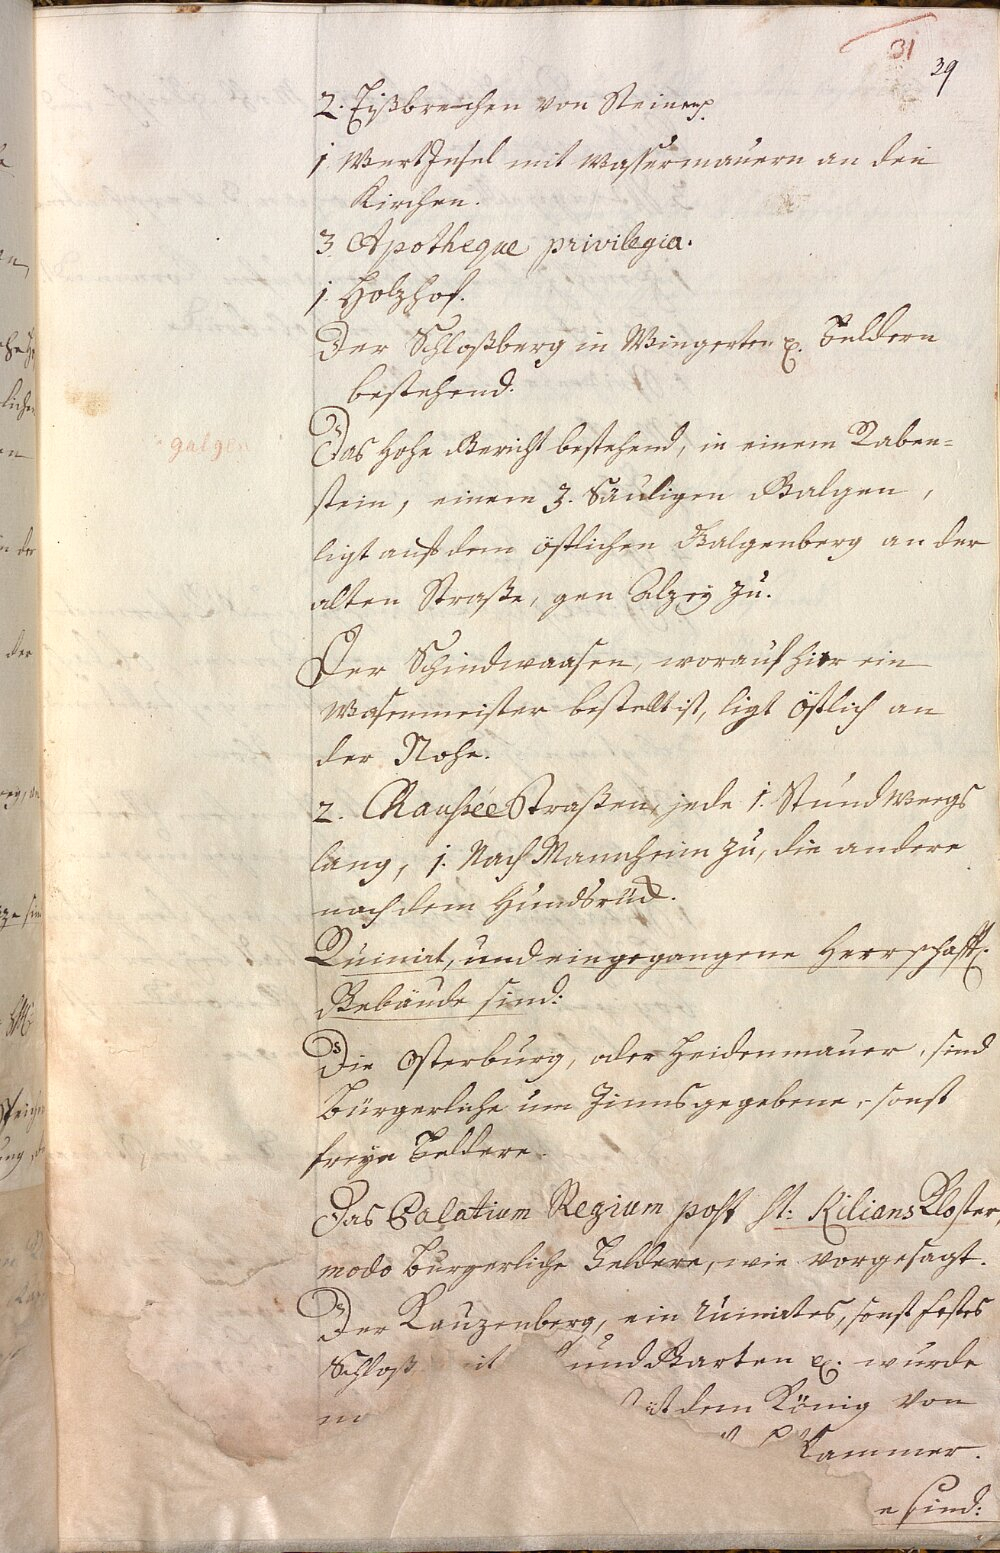 31
39
2. Eißbrechen von Steinen
1 Wert Insel mit Wassermauern an den
Kirchen.
3. Apotheque privilegia.
1. Holzhof.
Der Schloßberg in Wingerten &. Feldern
bestehend.
galgen
Das hohe Gericht bestehend, in einem Raben=
stein, einem 3. Säuligen Galgen,
ligt auf dem östlichen Galgenberg an der
alten Straße, gen Alzey zu.
Der Schindwaasen, worauf hier ein
Wasenmeister bestellt ist, ligt östlich an
der Nohe.
2. Chaussée Straßen, jede 1. Stund Weegs
lang, 1. Nach Mannheim zu, die andere
nach dem Hundsrück.
Ruinirt, und eingegangene Herrschafftl.
Gebäude sind:
Die Osterburg, oder Heidenmauer, sind
Bürgerliche um Zinns gegebene, sonst
freye Feldere.
Das Palatium Regium post St: Kilians Kloster,
modo Burgerliche Feldere, wie vorgesagt.
Der Kauzenberg, ein ruinirtes, sonst festes
Schloß it und Garten &. wurde
dem König von
Kammer.
e sind: